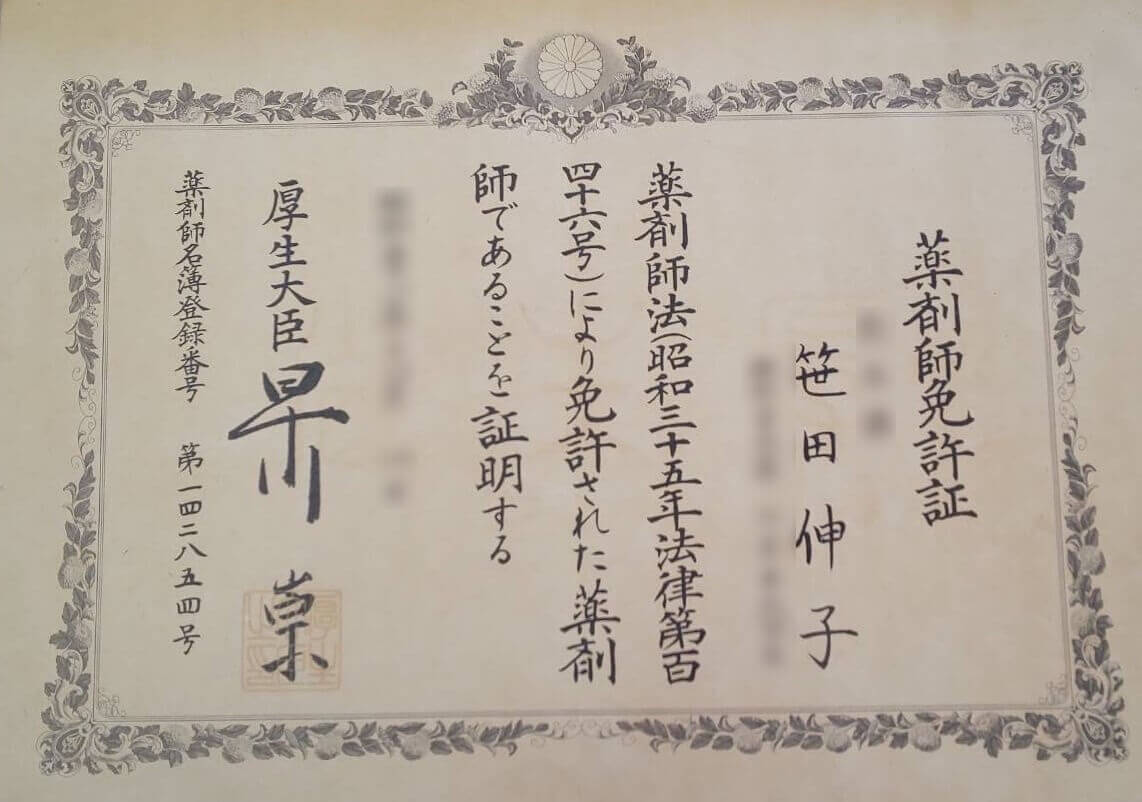 薬剤師免許証
笹田伸子
薬剤師法(昭和三十五年法律第百
四十六号)により免許された薬剤
師であることを証明する
厚生大臣 早川 崇
薬剤師名簿登録番号 第一四二八五四号